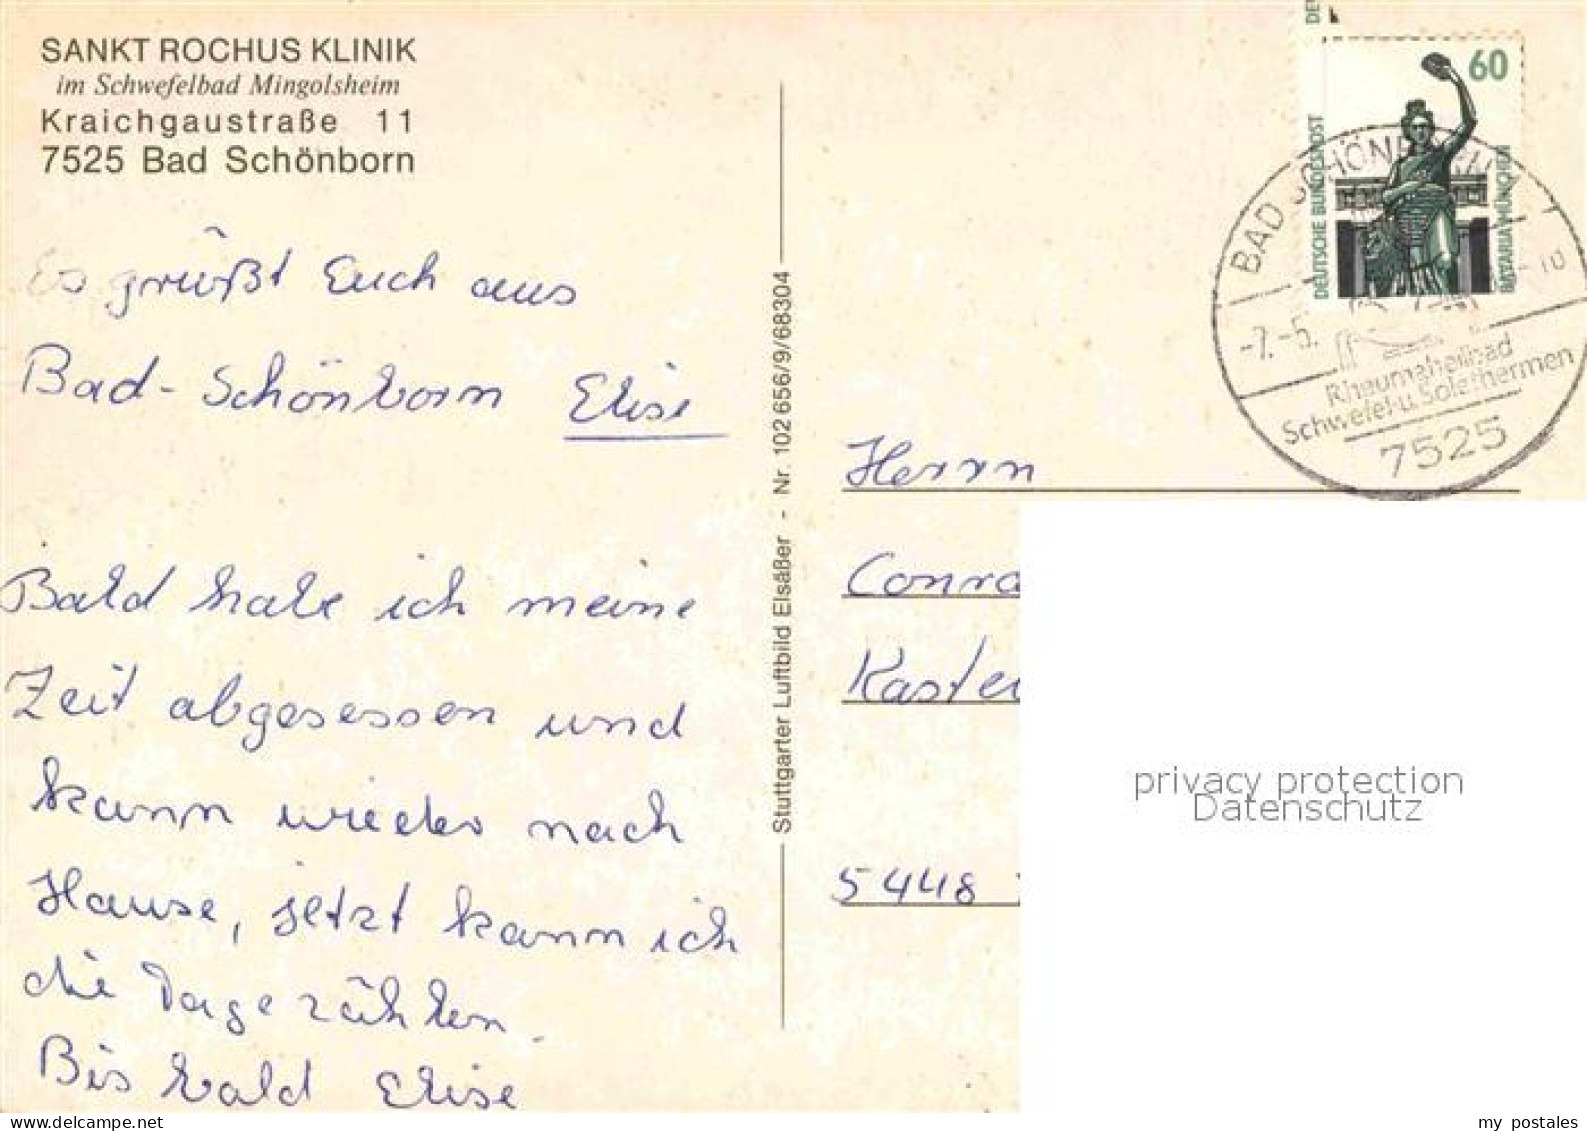 SANKT ROCHUS KLINIK
im Schwefelbad Mingolsheim
Kraichgaustraße 11
7525 Bad Schönborn
Es grüßt Euch aus
Bad-Schönborn Elise
Bald habe ich meine
Zeit abgesessen und
kann wieder nach
Hause, jetzt kann ich
die Tage zählen
Bis bald Elise
Stuttgarter Luftbild Elsäßer - Nr. 102 656/9/68304
60
DEUTSCHE BUNDESPOST
BAVARIA MÜNCHEN
BAD SCHÖNBORN
-7.-5.
-10
Rheumaheilbad
Schwefel-u. Solethermen
7525
Herrn
Conra
Kaste
5448
privacy protection
Datenschutz
www.delcampe.net
my_postales